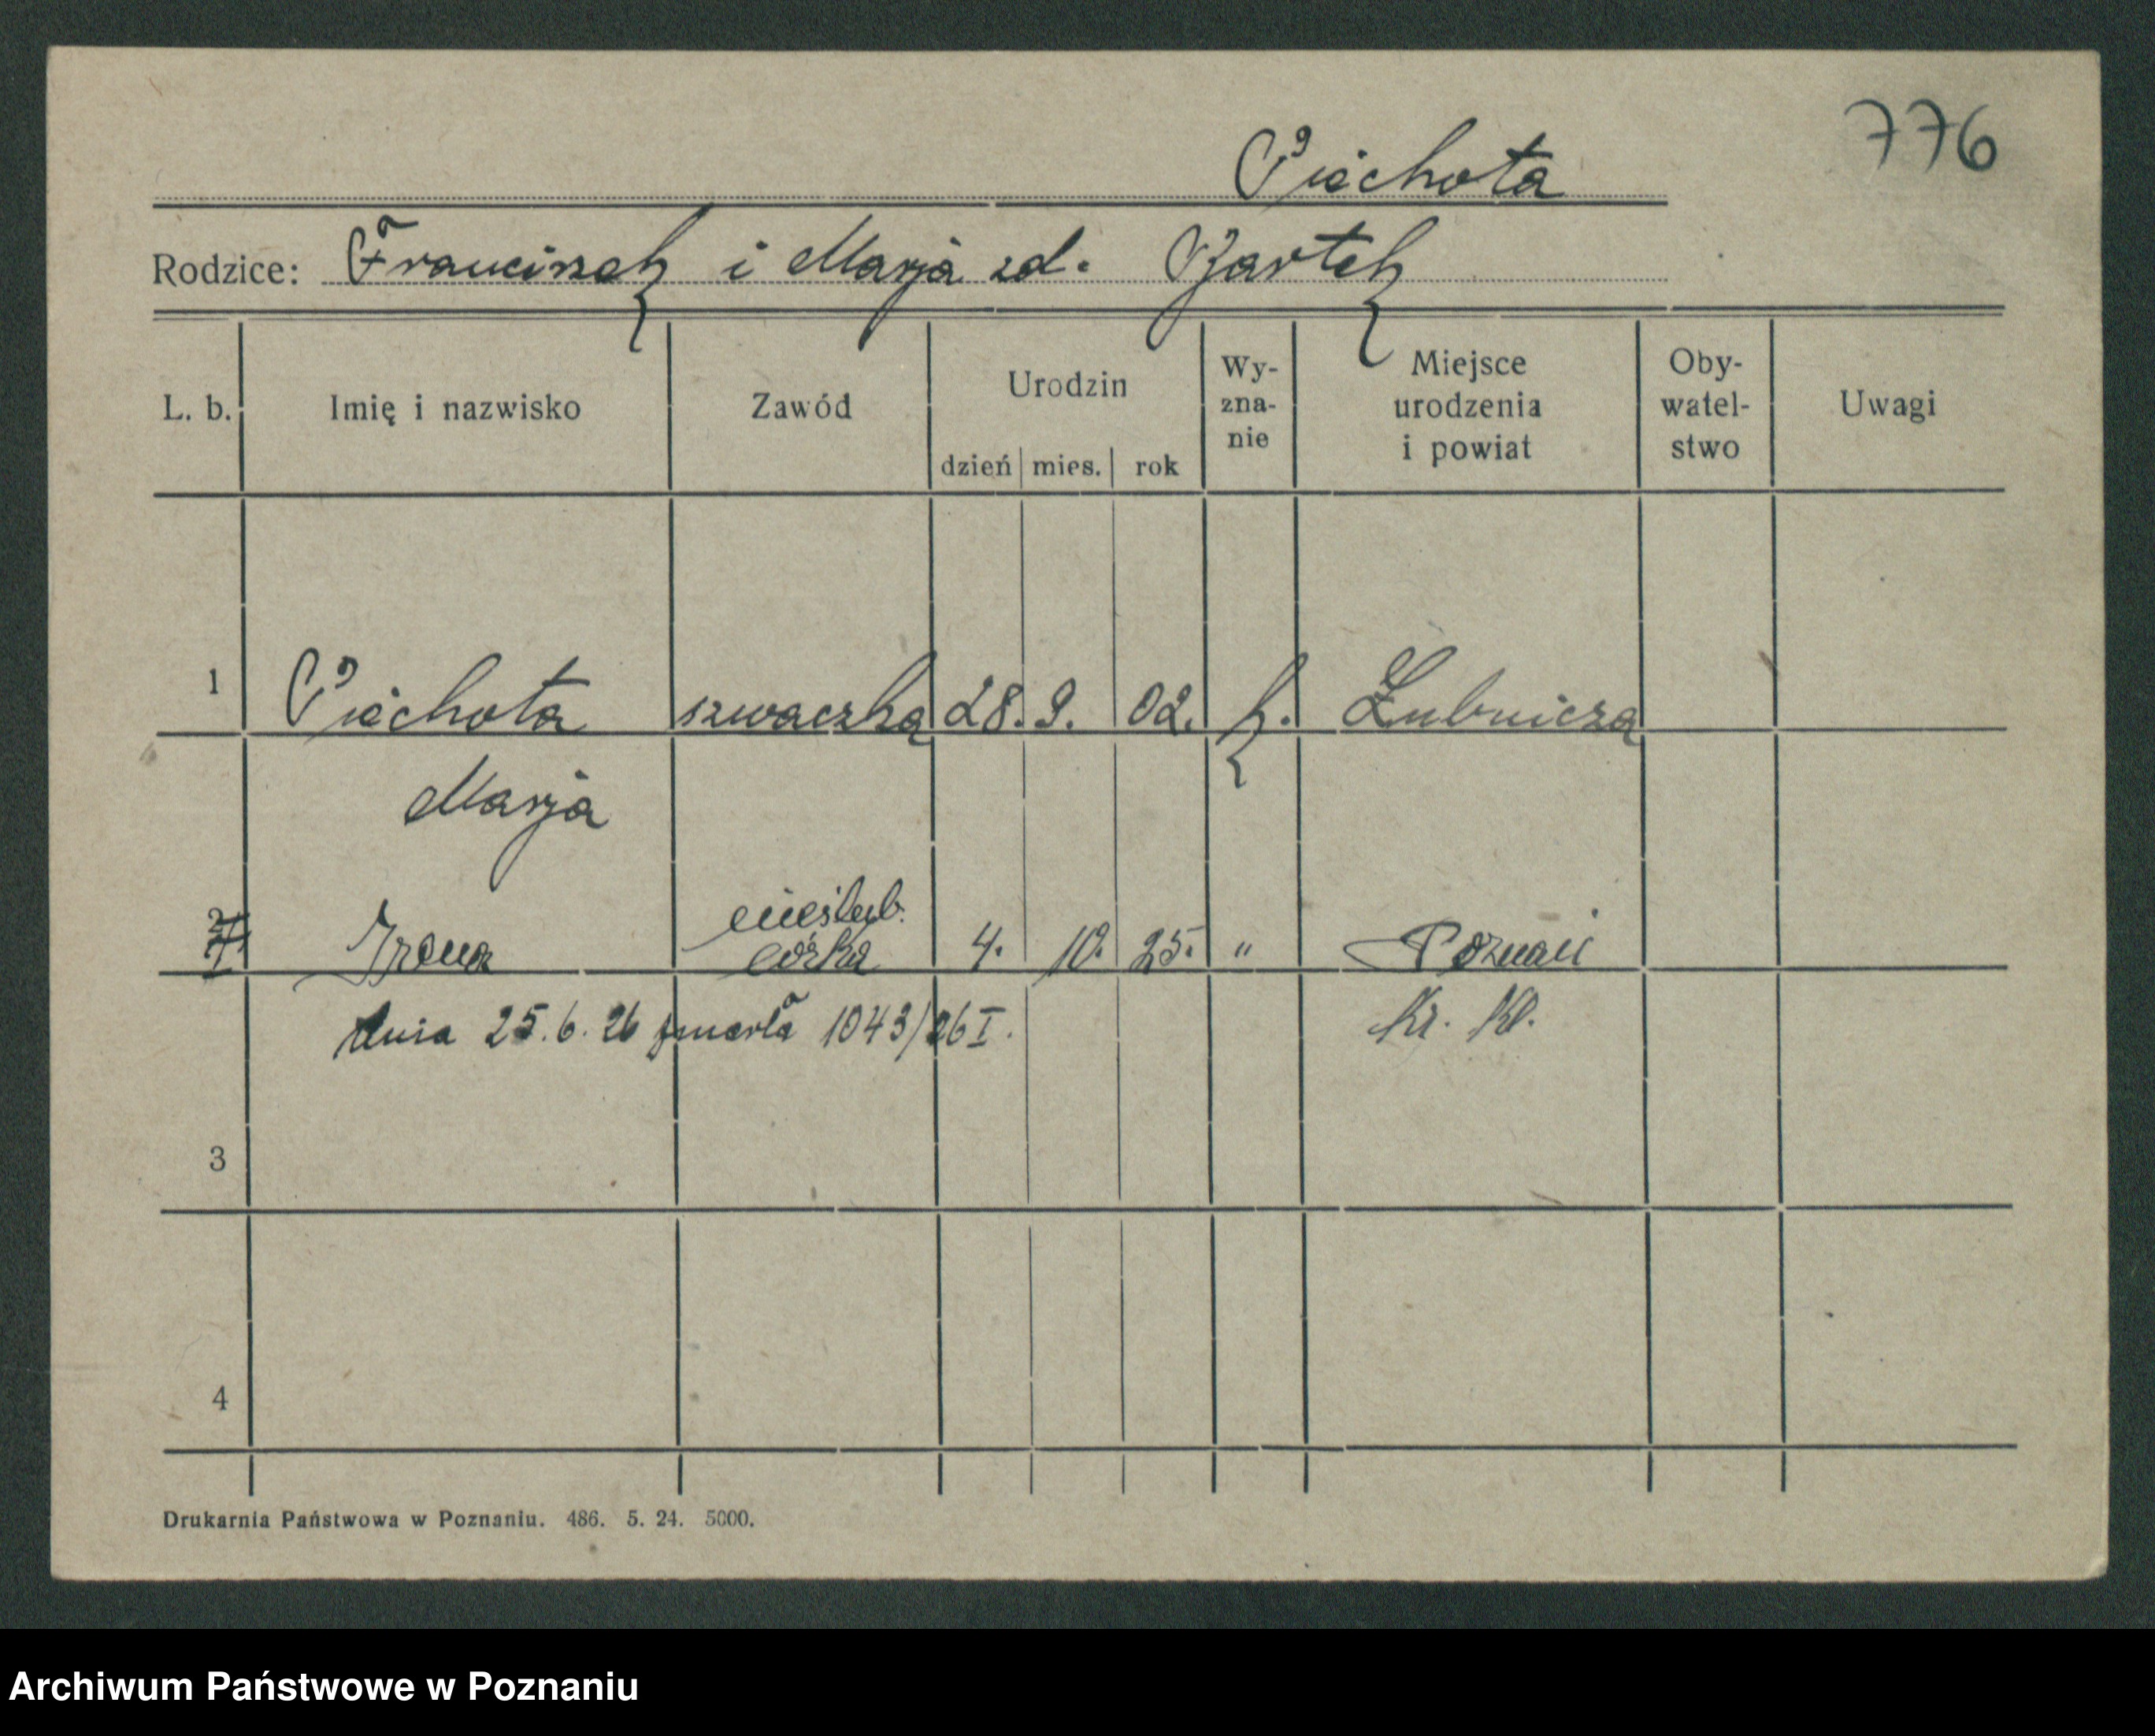 776
Piechota
Rodzice: Franciszek i Marja zd. Bartek
L. b. Imię i nazwisko Zawód Urodzin dzień mies. rok Wy-zna-nie Miejsce urodzenia i powiat Oby-watel-stwo Uwagi
1 Piechota szwaczka 28. 9. 02. k. Łubnicza
Marja
nieślub.
2 Irena córka 4. 10. 25. " Poznań
dnia 25.6.26 zmarła 1043/26 I. Kr. Kl.
3
4
Drukarnia Państwowa w Poznaniu. 486. 5. 24. 5000.
Archiwum Państwowe w Poznaniu